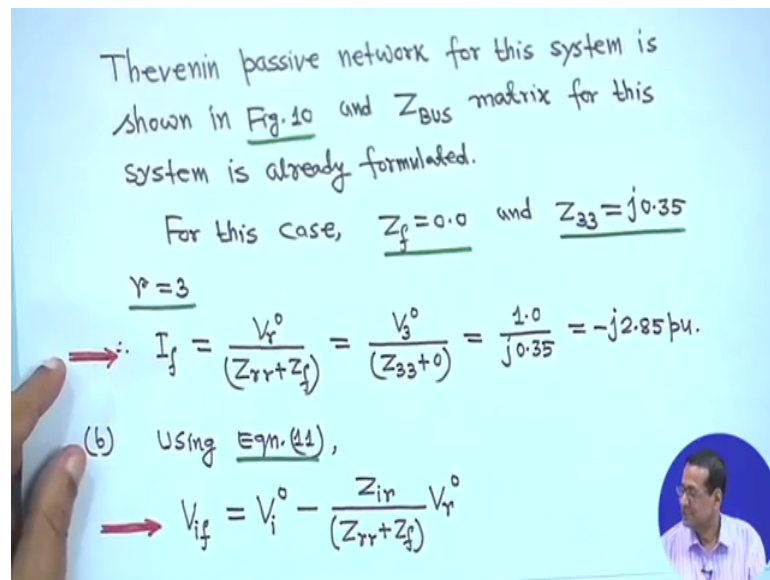 Thevenin passive network for this system is
shown in Fig.10 and Z_BUS matrix for this
system is already formulated.
For this case, Z_f = 0.0 and Z_33 = j0.35
r = 3
∴ I_f = V_r^0 / (Z_rr + Z_f) = V_3^0 / (Z_33 + 0) = 1.0 / j0.35 = -j2.85 pu.
(b) Using Eqn.(11),
V_if = V_i^0 - Z_ir / (Z_rr + Z_f) V_r^0